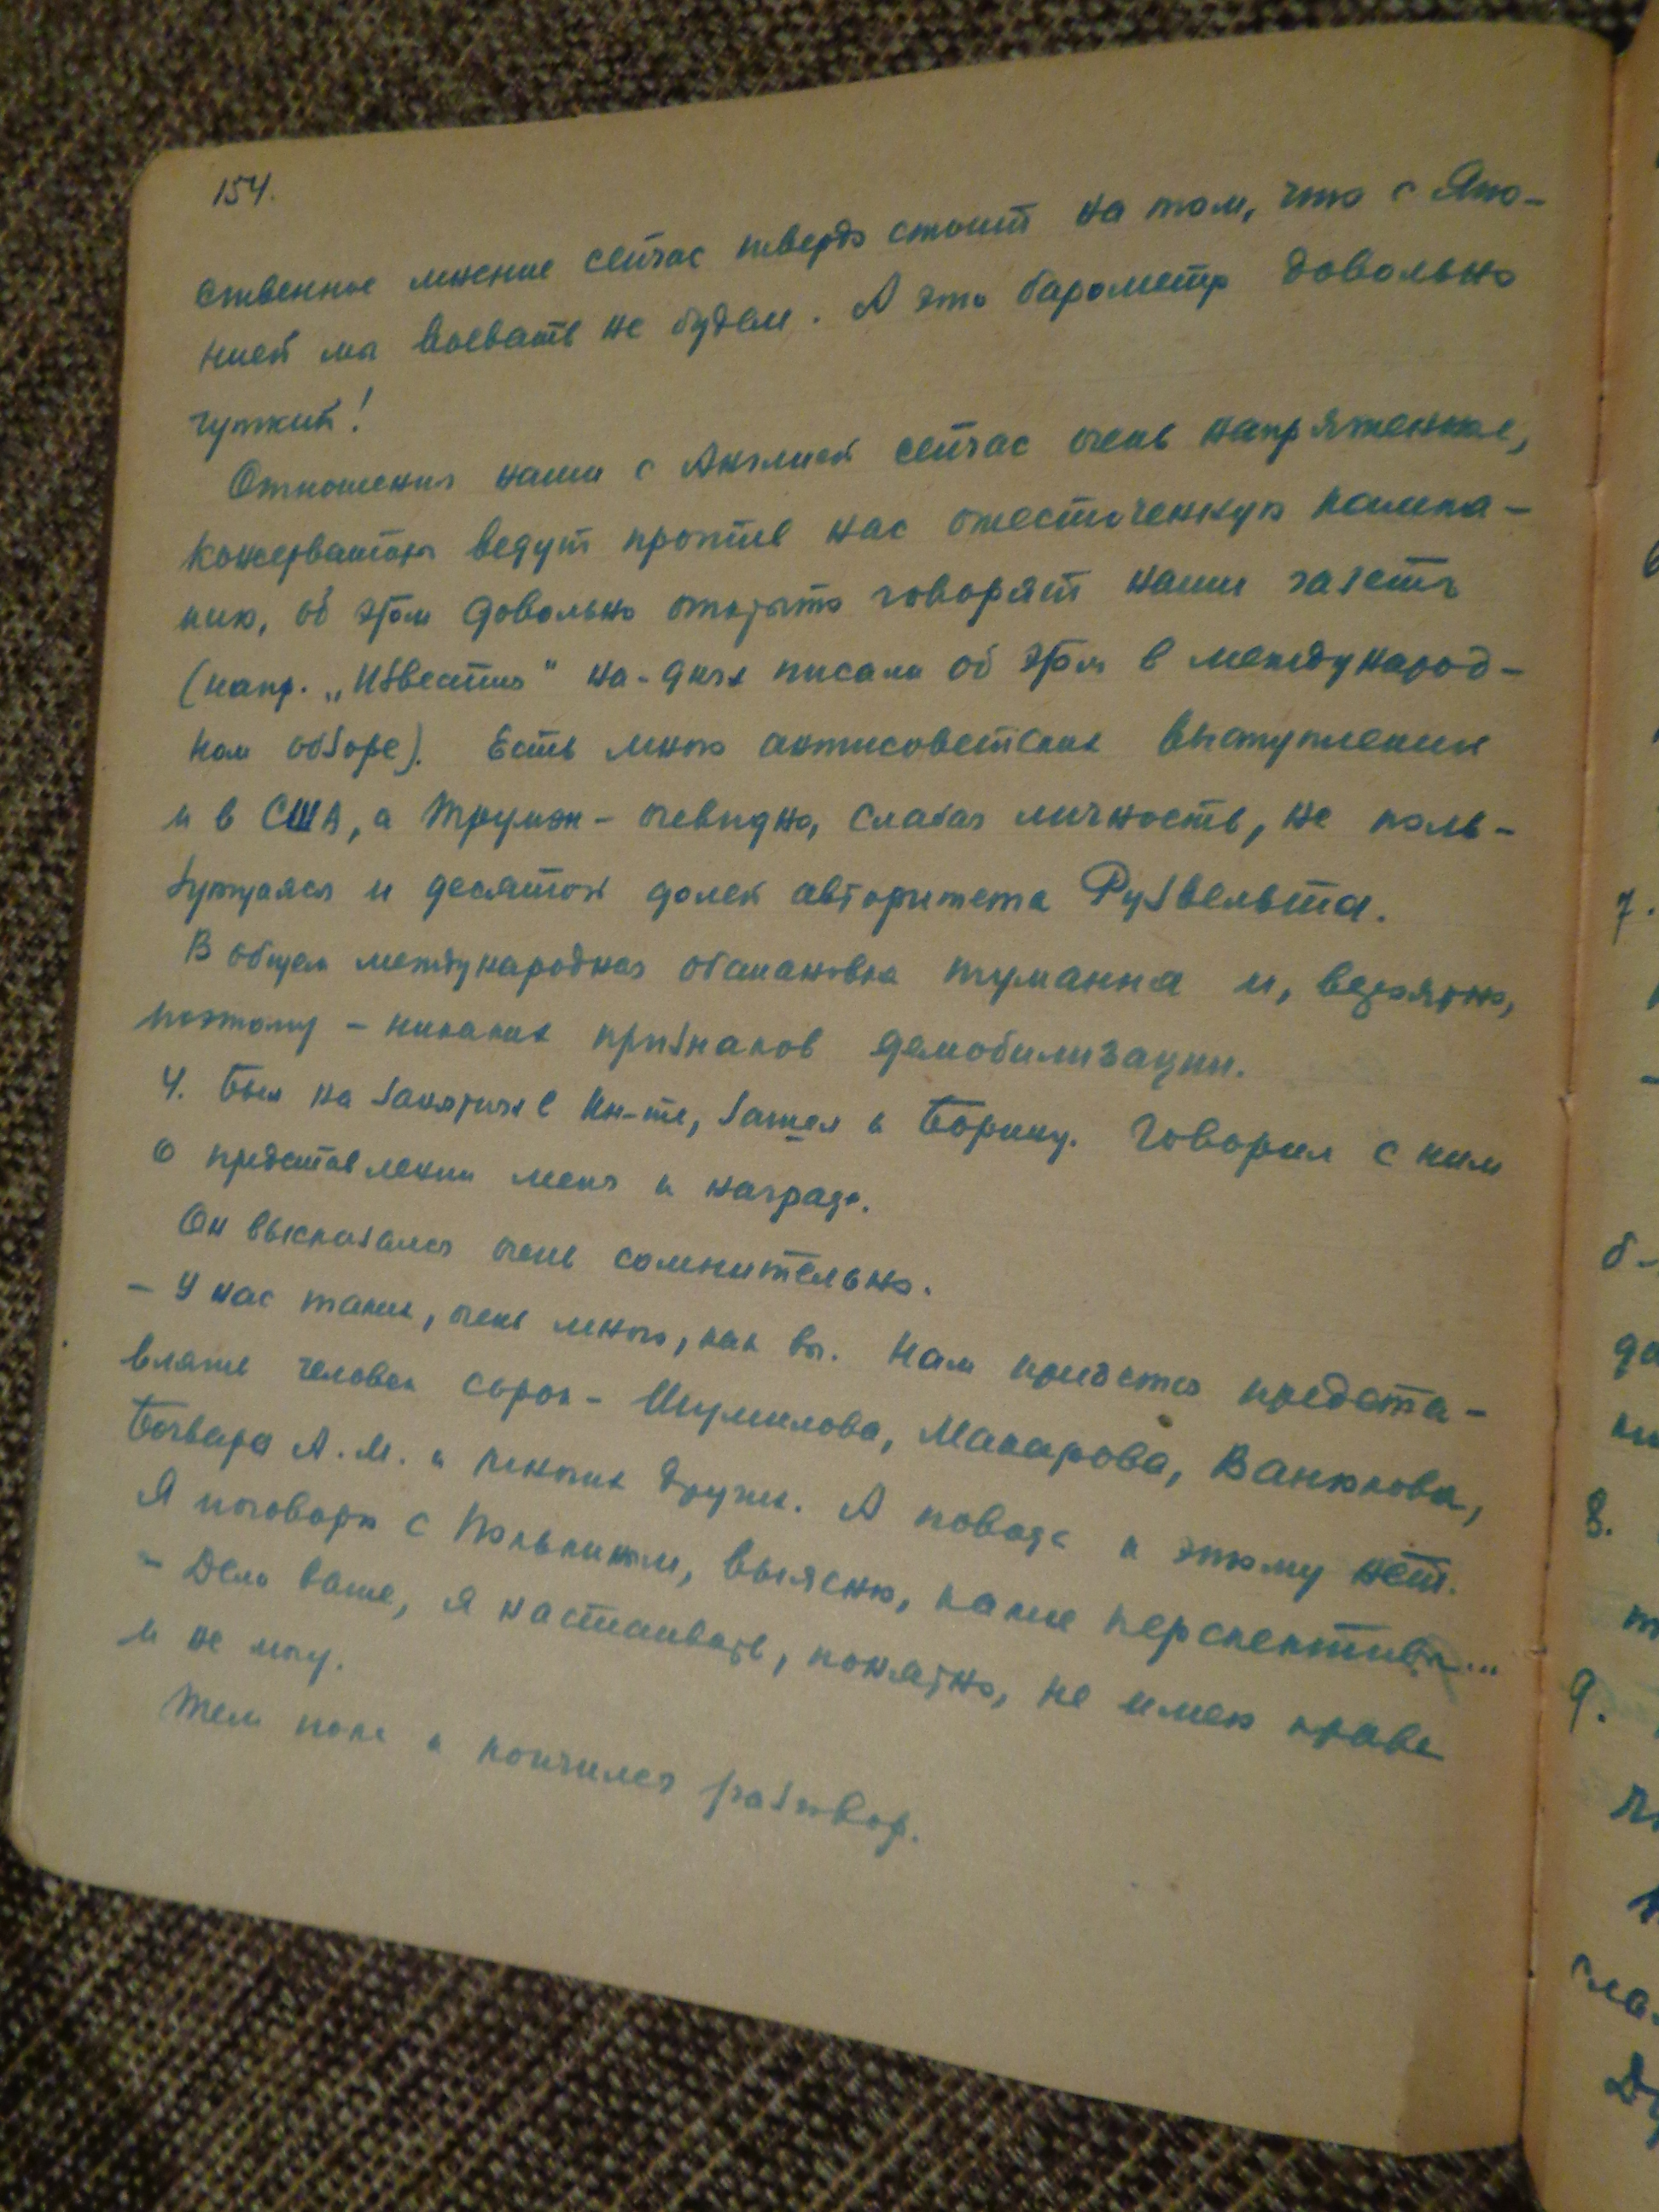 154.
ственное мнение сейчас твердо стоит на том, что с Япо-
нией мы воевать не будем. А это барометр довольно
чуткий!
Отношения наши с Англией сейчас очень напряженные,
консерваторы ведут против нас ожесточенную кампа-
нию, об этом довольно открыто говорят наши газеты
(напр. „Известия" на-днях писали об этом в международ-
ном обзоре). Есть много антисоветских выступлений
и в США, а Трумэн - очевидно, слабая личность, не поль-
зующаяся и десятой долей авторитета Рузвельта.
В общем международная обстановка туманна и, вероятно,
поэтому - никаких признаков демобилизации.
4. Был на занятиях в Ин-те, зашел к Борину. Говорил с ним
о представлении меня к награде.
Он высказался очень сомнительно.
- У нас таких, очень много, как вы. Нам придется предста-
влять человек сорок - Шумилова, Макарова, Ванюкова,
Бочвара А.М. и многих других. А повода к этому нет.
Я поговорю с Полькиным, выясню, какие перспективы...
- Дело ваше, я настаивать, понятно, не имею права
и не могу.
Тем пока и кончился разговор.
7.
8.
9.